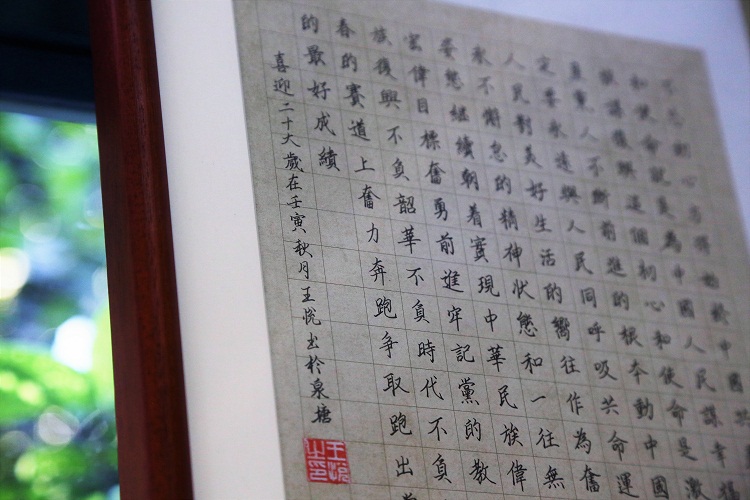 不忘初心方得始
和使命就是為中國人民謀幸
族謀復興這個初心和使命是激
產黨人不斷前進的根本動
定要永遠與人民同呼吸共命運
人民對美好生活的嚮往作為奮
永不懈怠的精神狀態和一往無
姿態繼續朝着實現中華民族偉
宏偉目標奮勇前進牢記黨的教
族復興不負韶華不負時代不負
春的賽道上奮力奔跑爭取跑出
的最好成績
喜迎二十大歲在壬寅秋月王悅书於泉塘
王悅之印